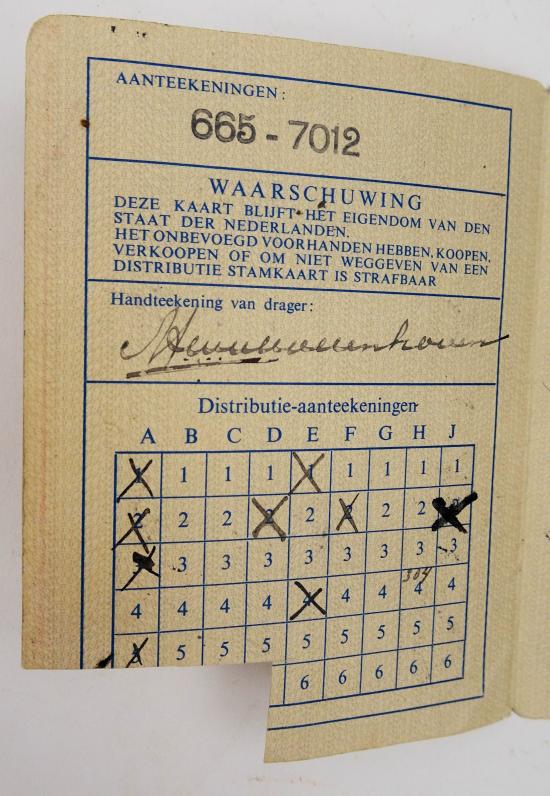 AANTEEKENINGEN:
665 - 7012
WAARSCHUWING
DEZE KAART BLIJFT HET EIGENDOM VAN DEN
STAAT DER NEDERLANDEN.
HET ONBEVOEGD VOORHANDEN HEBBEN, KOOPEN,
VERKOOPEN OF OM NIET WEGGEVEN VAN EEN
DISTRIBUTIE STAMKAART IS STRAFBAAR
Handteekening van drager:
Distributie-aanteekeningen
A B C D E F G H J
1 1 1 1 1 1 1 1 1
2 2 2 2 2 2 2 2 2
3 3 3 3 3 3 3 3 3
304
4 4 4 4 4 4 4 4 4
5 5 5 5 5 5 5 5 5
6 6 6 6 6